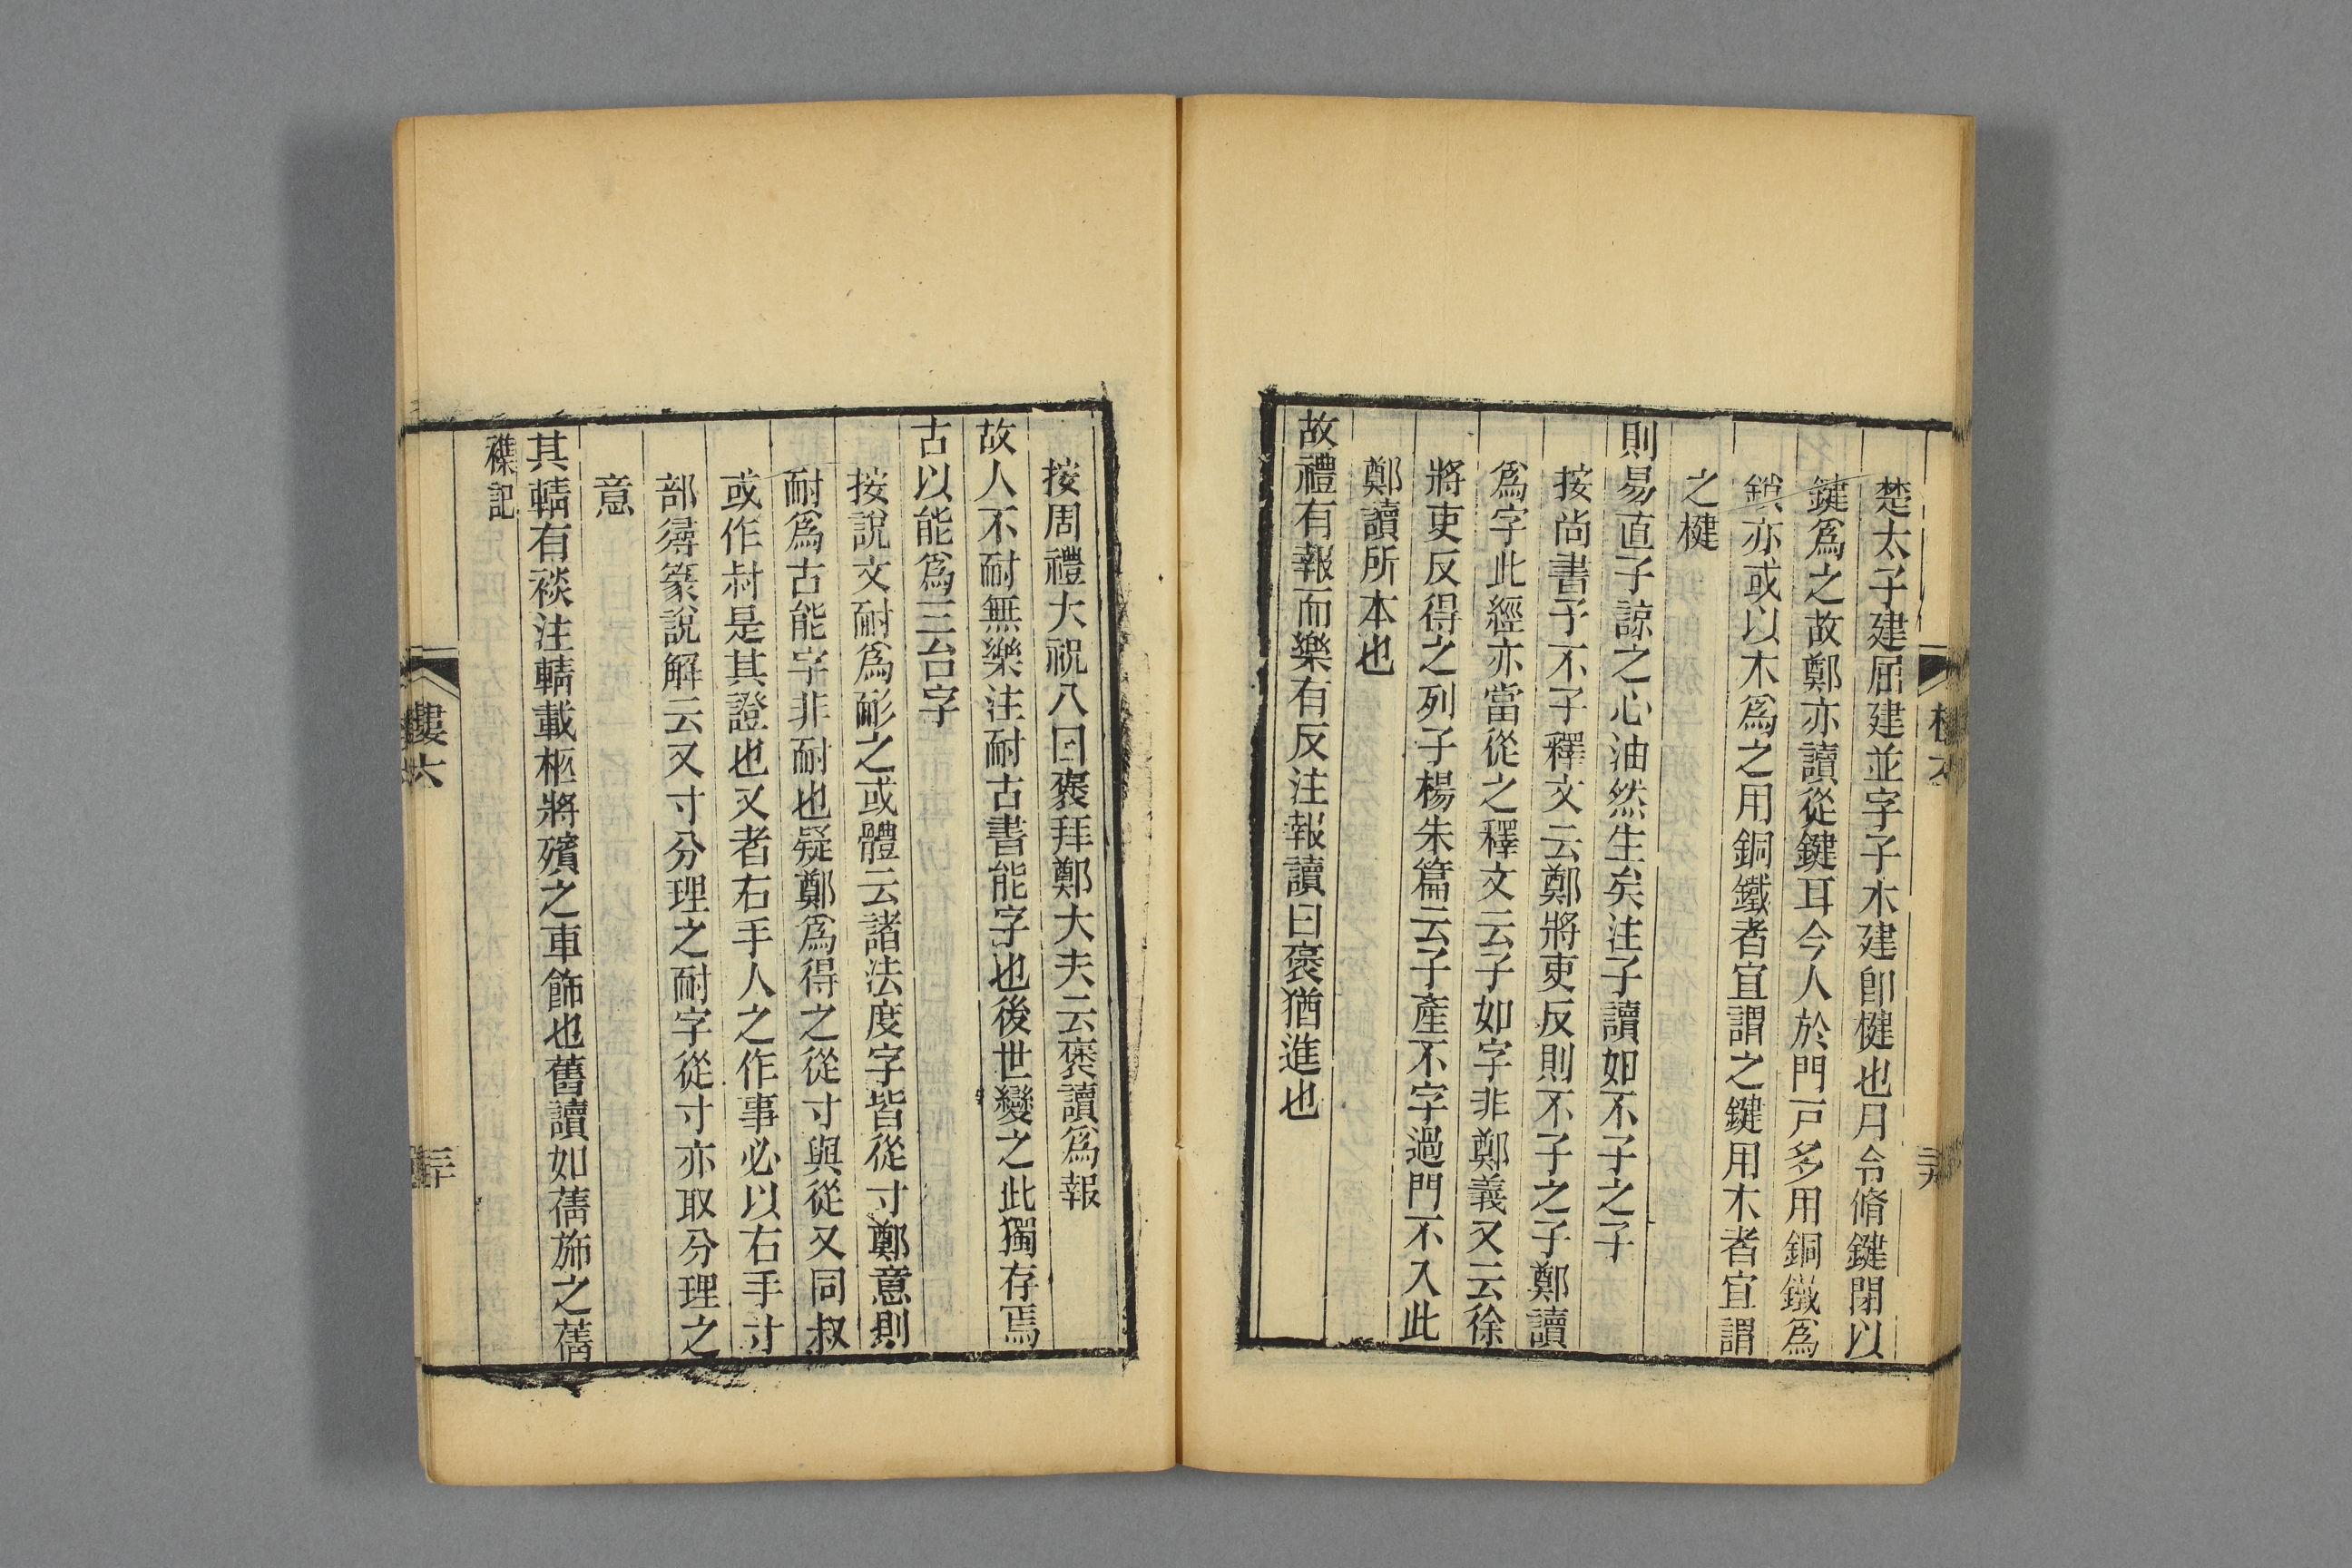 楚太子建屈建並字子木建卽楗也月令脩鍵閉以
鍵爲之故鄭亦讀從鍵耳今人於門戸多用銅鐵爲
鎖亦或以木爲之用銅鐵者宜謂之鍵用木者宜謂
之楗
則易直子諒之心油然生矣注子讀如不子之子
按尚書予不子釋文云鄭將吏反則不子之子鄭讀
爲字此經亦當從之釋文云子如字非鄭義又云徐
將吏反得之列子楊朱篇云子產不字過門不入此
鄭讀所本也
故禮有報而樂有反注報讀曰褒猶進也
按周禮大祝八曰褒拜鄭大夫云褒讀爲報
故人不耐無樂注耐古書能字也後世變之此獨存焉
古以能爲三台字
按說文耐爲耏之或體云諸法度字皆從寸鄭意則
耐爲古能字非耐也疑鄭爲得之從寸與從又同叔
或作村是其證也又者右手人之作事必以右手寸
部㝷篆說解云又寸分理之耐字從寸亦取分理之
意
襍記
其輤有裧注輤載柩將殯之車飾也舊讀如蒨旆之蒨
樓六
三十